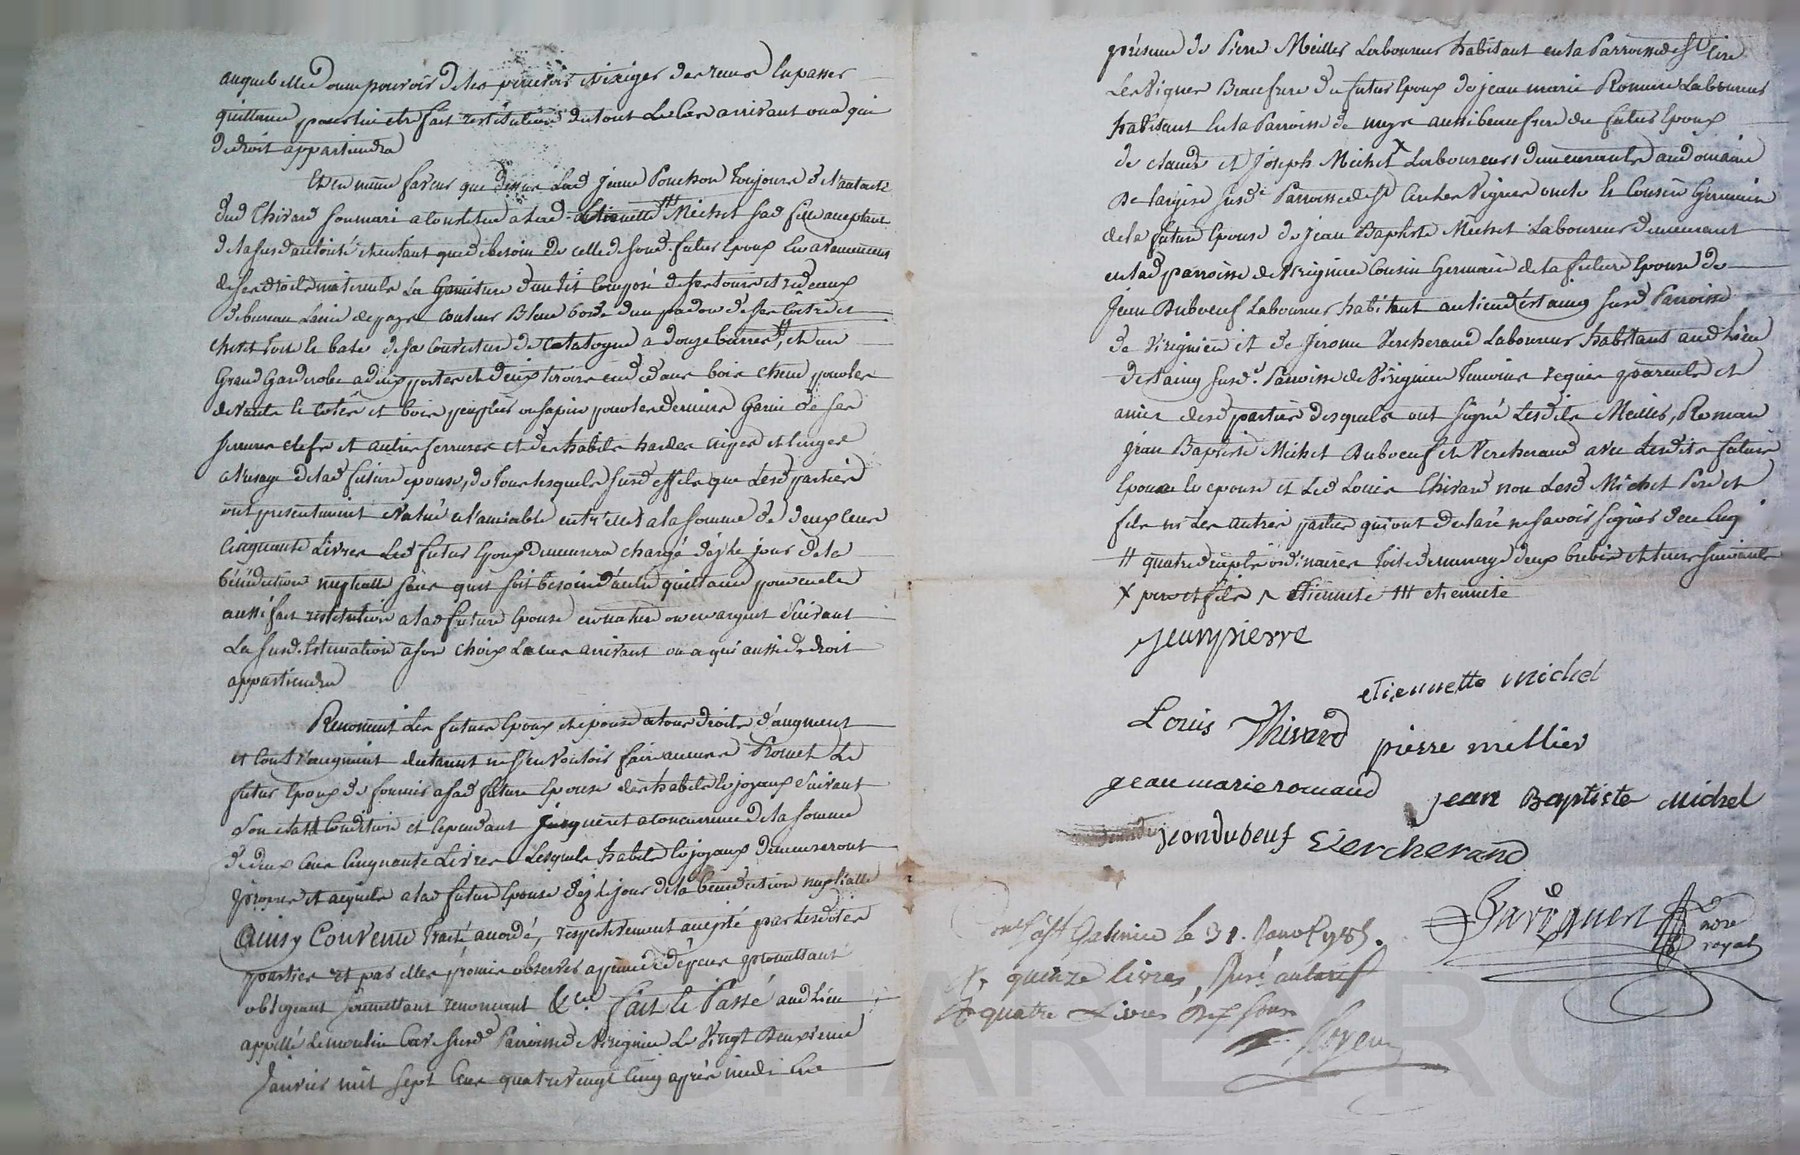 auquel elle donne pouvoir de les percevoir et exiger des reçus en passer
quittance pour lui etre fait restitution du tout le cas arrivant ou a qui
de droit appartiendra
Et en même faveur que dessus lad Jeanne Ponchon toujours de l'autorité
dud Thivard son mari a constitué a lad Etiennette Michel sad fille acceptant
de la susd autorité et entant que de besoin de celle de sond futur Epoux en avancement
de ses droits maternels la Garniture d'un lit composé de ses tours et rideaux
de bureau laine de pays couleur Bleue bordé d'un padou de
chevet toit et bate de sa couverture de Catalogne a douze barres, et un
Grand Garderobe a deux portes et deux tiroirs en dedans bois chene pour les
devants et cotés et bois peuplier ou sapin pour les derniers Garni de ses
serrures clefs et autres ferrures et des habits hardes nipes et linges
a l'usage de lad future epouse, de tous lesquels susd effets que lesd parties
ont presentement évalué a l'amiable entr'elles a la somme de deux cens
Cinquante Livres led futur Epoux demeurera chargé dès le jour de la
bénédiction nuptialle sans qu'il soit besoin d'autre quittance pour en etre
aussi fait restitution a lad future Epouse en nature ou en argent suivant
La susd. Estimation a son choix le cas arrivant ou a qui aussi de droit
appartiendra
Renoncent les futurs Epoux et epouse a tous droits d'augment
et Contr'augment declarant ne s'en vouloir faire aucuns Promet le
futur Epoux de fournir a sad future Epouse des habits et joyaux suivant
son etat et Condition et cependant jusques et a concurrence de la somme
de deux cens Cinquante Livres Lesquels habits et joyaux demeureront
propres et acquis a lad future Epouse dès le jour de la bénédiction nuptialle
Ainsy Convenu traité accordé, respectivement accepté par lesdites
parties et par elles promis observer a peine de dépens promettant
obligeant soumettant renonçant &ca Fait et Passé aud Lieu
appellé Le moulin susd Parroisse de Virignieu Le Vingt Deuxieme
Janvier mil sept Cens quatre vingt Cinq après midi En
présence de Pierre Meiller Laboureur habitant en la Parroisse de St Cire
Les Vignes Beaufrere du futur Epoux de jean marie Romand Laboureur
habitant En la Parroisse de aussi beaufrere du futur Epoux
de claude et Joseph Michel X Laboureurs demeurants au domaine
de susd. Parroisse de St Cire les Vignes oncle et Cousin Germain
de la future Epouse de Jean Baptiste Michel Laboureur demeurant
en lad parroisse de Virignieu Cousin Germain de la future Epouse de
Jean Duboeuf Laboureur habitant au lieu d'Estaing susd Parroisse
de Virignieu et de Jerome Vercherand Laboureur habitant aud Lieu
d'Estaing susd. Parroisse de Virignieu Temoins requis parents et
amis desd parties desquels ont signé Lesdits Meiller, Romand
Jean Baptiste Michel Duboeuf et Vercherand avec Lesdits futurs
Epoux et epouse et Led Louis Thivard non Lesd Michel Pere et
fils ni Les autres parties qui ont declaré ne savoir signer de ce Enq
# quatre draps ordinaires toile de menage deux brebis et leurs suivants
X pere et fils Etiennette ### etiennette
jeanpierre
etiennette michel
Louis Thivard pierre mellier
jean marie romand jean Baptiste michel
jean dubeuf Vercherand
not.re
royal
le 31. Janv. 1785.
R. quinze livres,
& quatre Livres dix sous